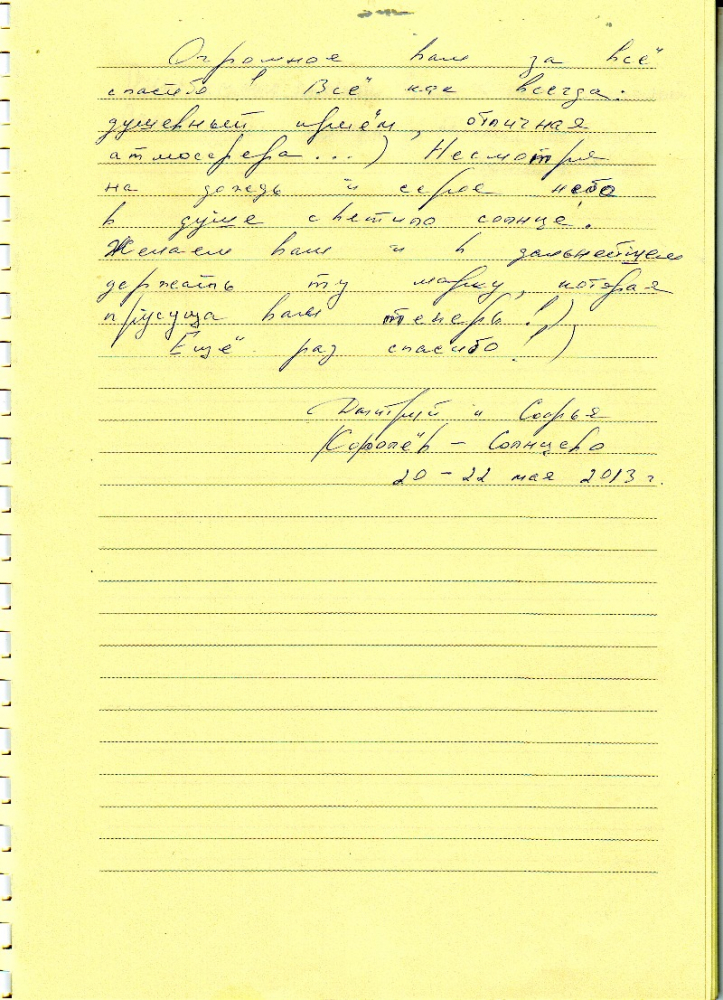 Огромное вам за всё
спасибо! Всё как всегда:
душевный приём, отличная
атмосфера...) Несмотря
на дождь и серое небо
в душе светило солнце.
Желаем вам и в дальнейшем
держать ту марку, которая
присуща вам теперь!)
Ещё раз спасибо!)
Дмитрий и Софья
Королёв – Солнцево
20 – 22 мая 2013 г.